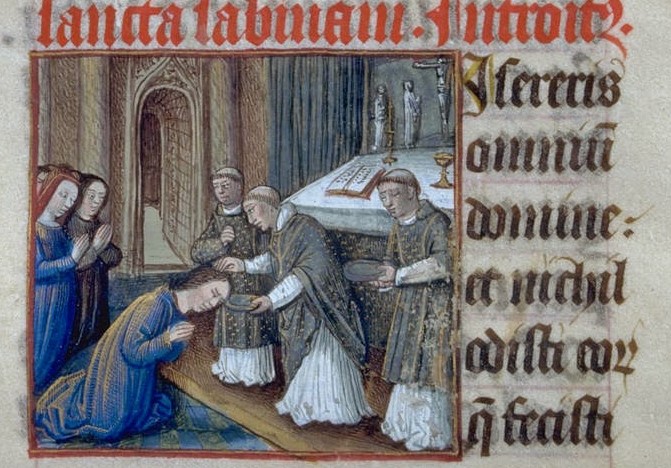 sancta sabinam. Introitꝰ.
Misereris
omniū
domine:
et nichil
odisti eoꝝ
q̄ fecisti